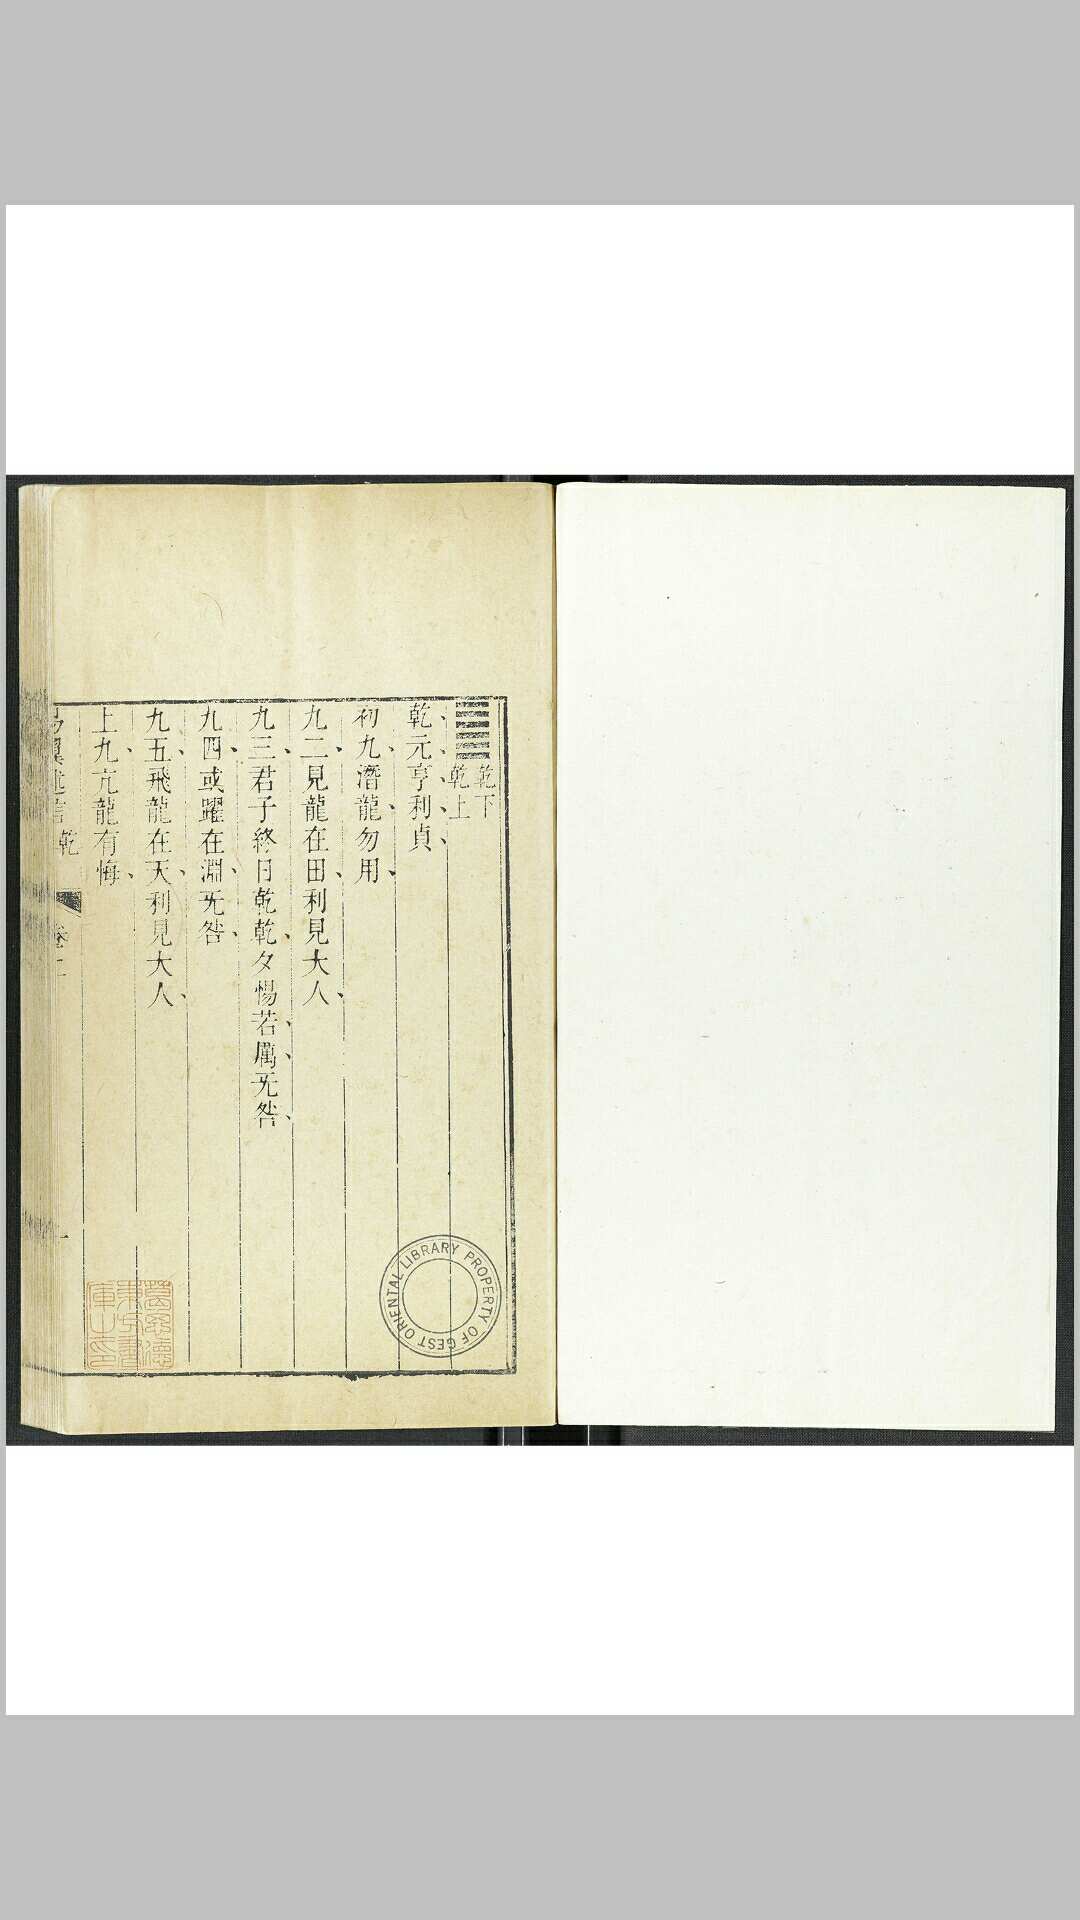 乾下
乾上
乾元亨利貞
初九潛龍勿用
九二見龍在田利見大人
九三君子終日乾乾夕惕若厲无咎
九四或躍在淵无咎
九五飛龍在天利見大人
上九亢龍有悔
易翼述信 乾 卷一 一
葛思德東方書庫之印
GEST ORIENTAL LIBRARY PROPERTY OF